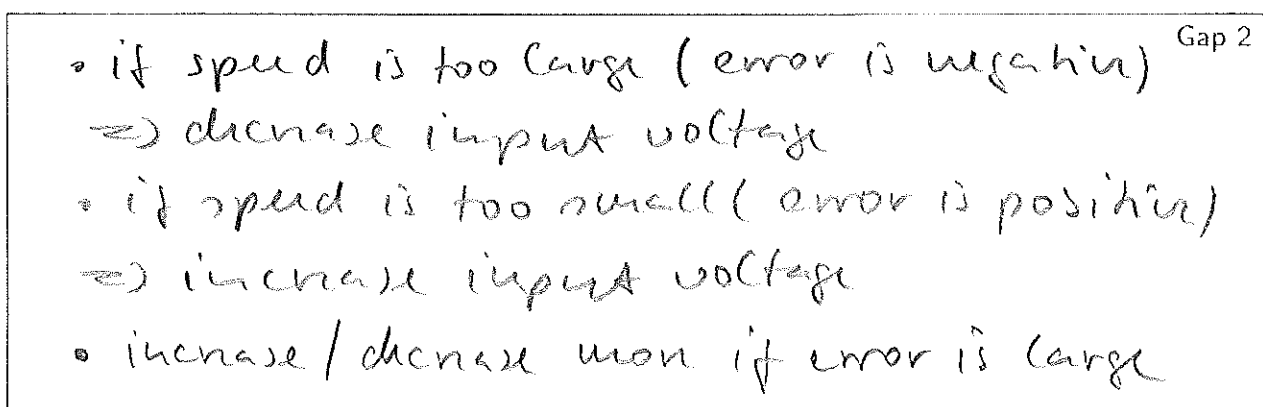 Gap 2
• if speed is too large (error is negative)
=> decrease input voltage
• if speed is too small (error is positive)
=> increase input voltage
• increase/decrease more if error is large